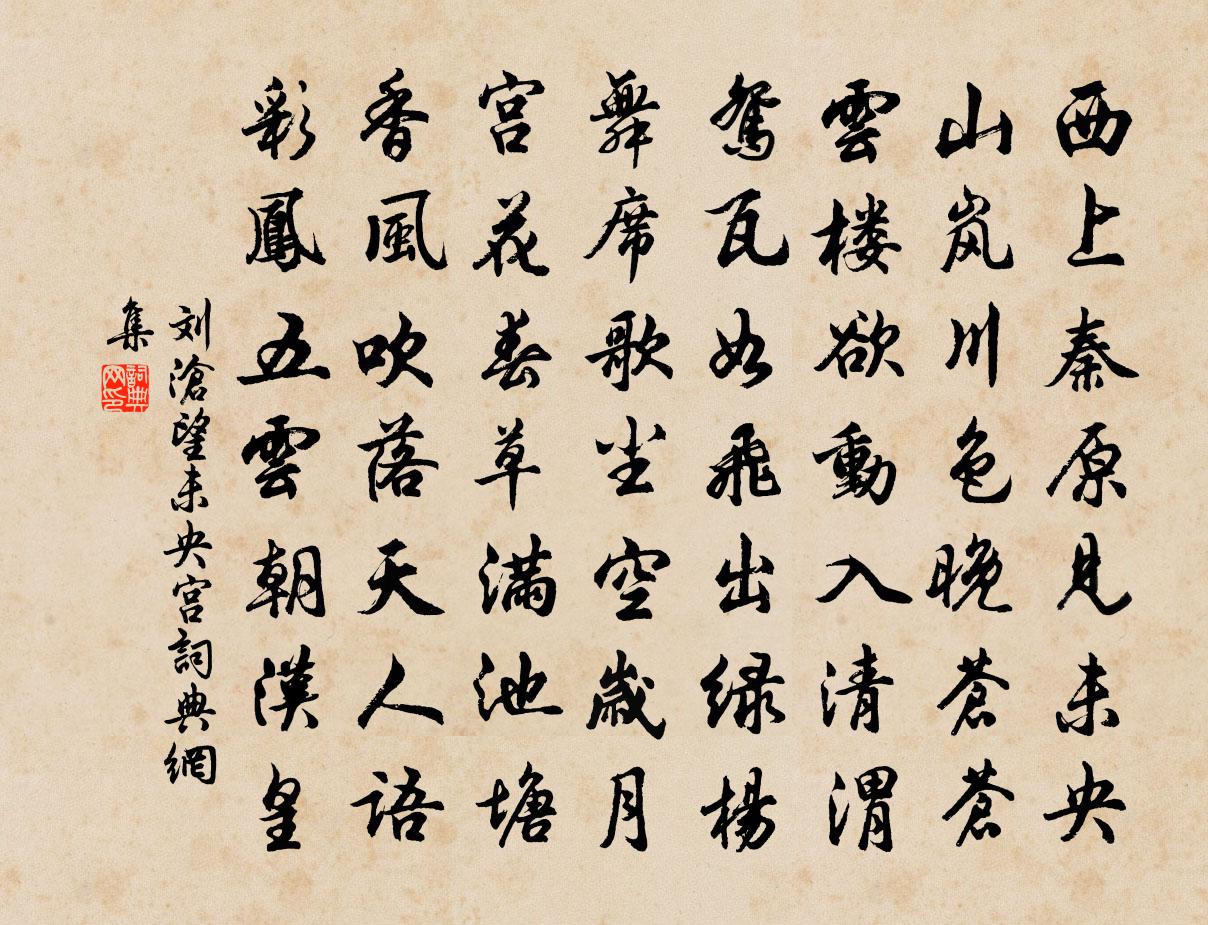 西上秦原見未央
山岚川色晚蒼蒼
雲楼欲動入清渭
鴛瓦如飛出绿楊
舞席歌塵空歲月
宫花春草满池塘
香風吹落天人语
彩鳳五雲朝漢皇
刘滄望未央宫詞典網
集
詞典网印